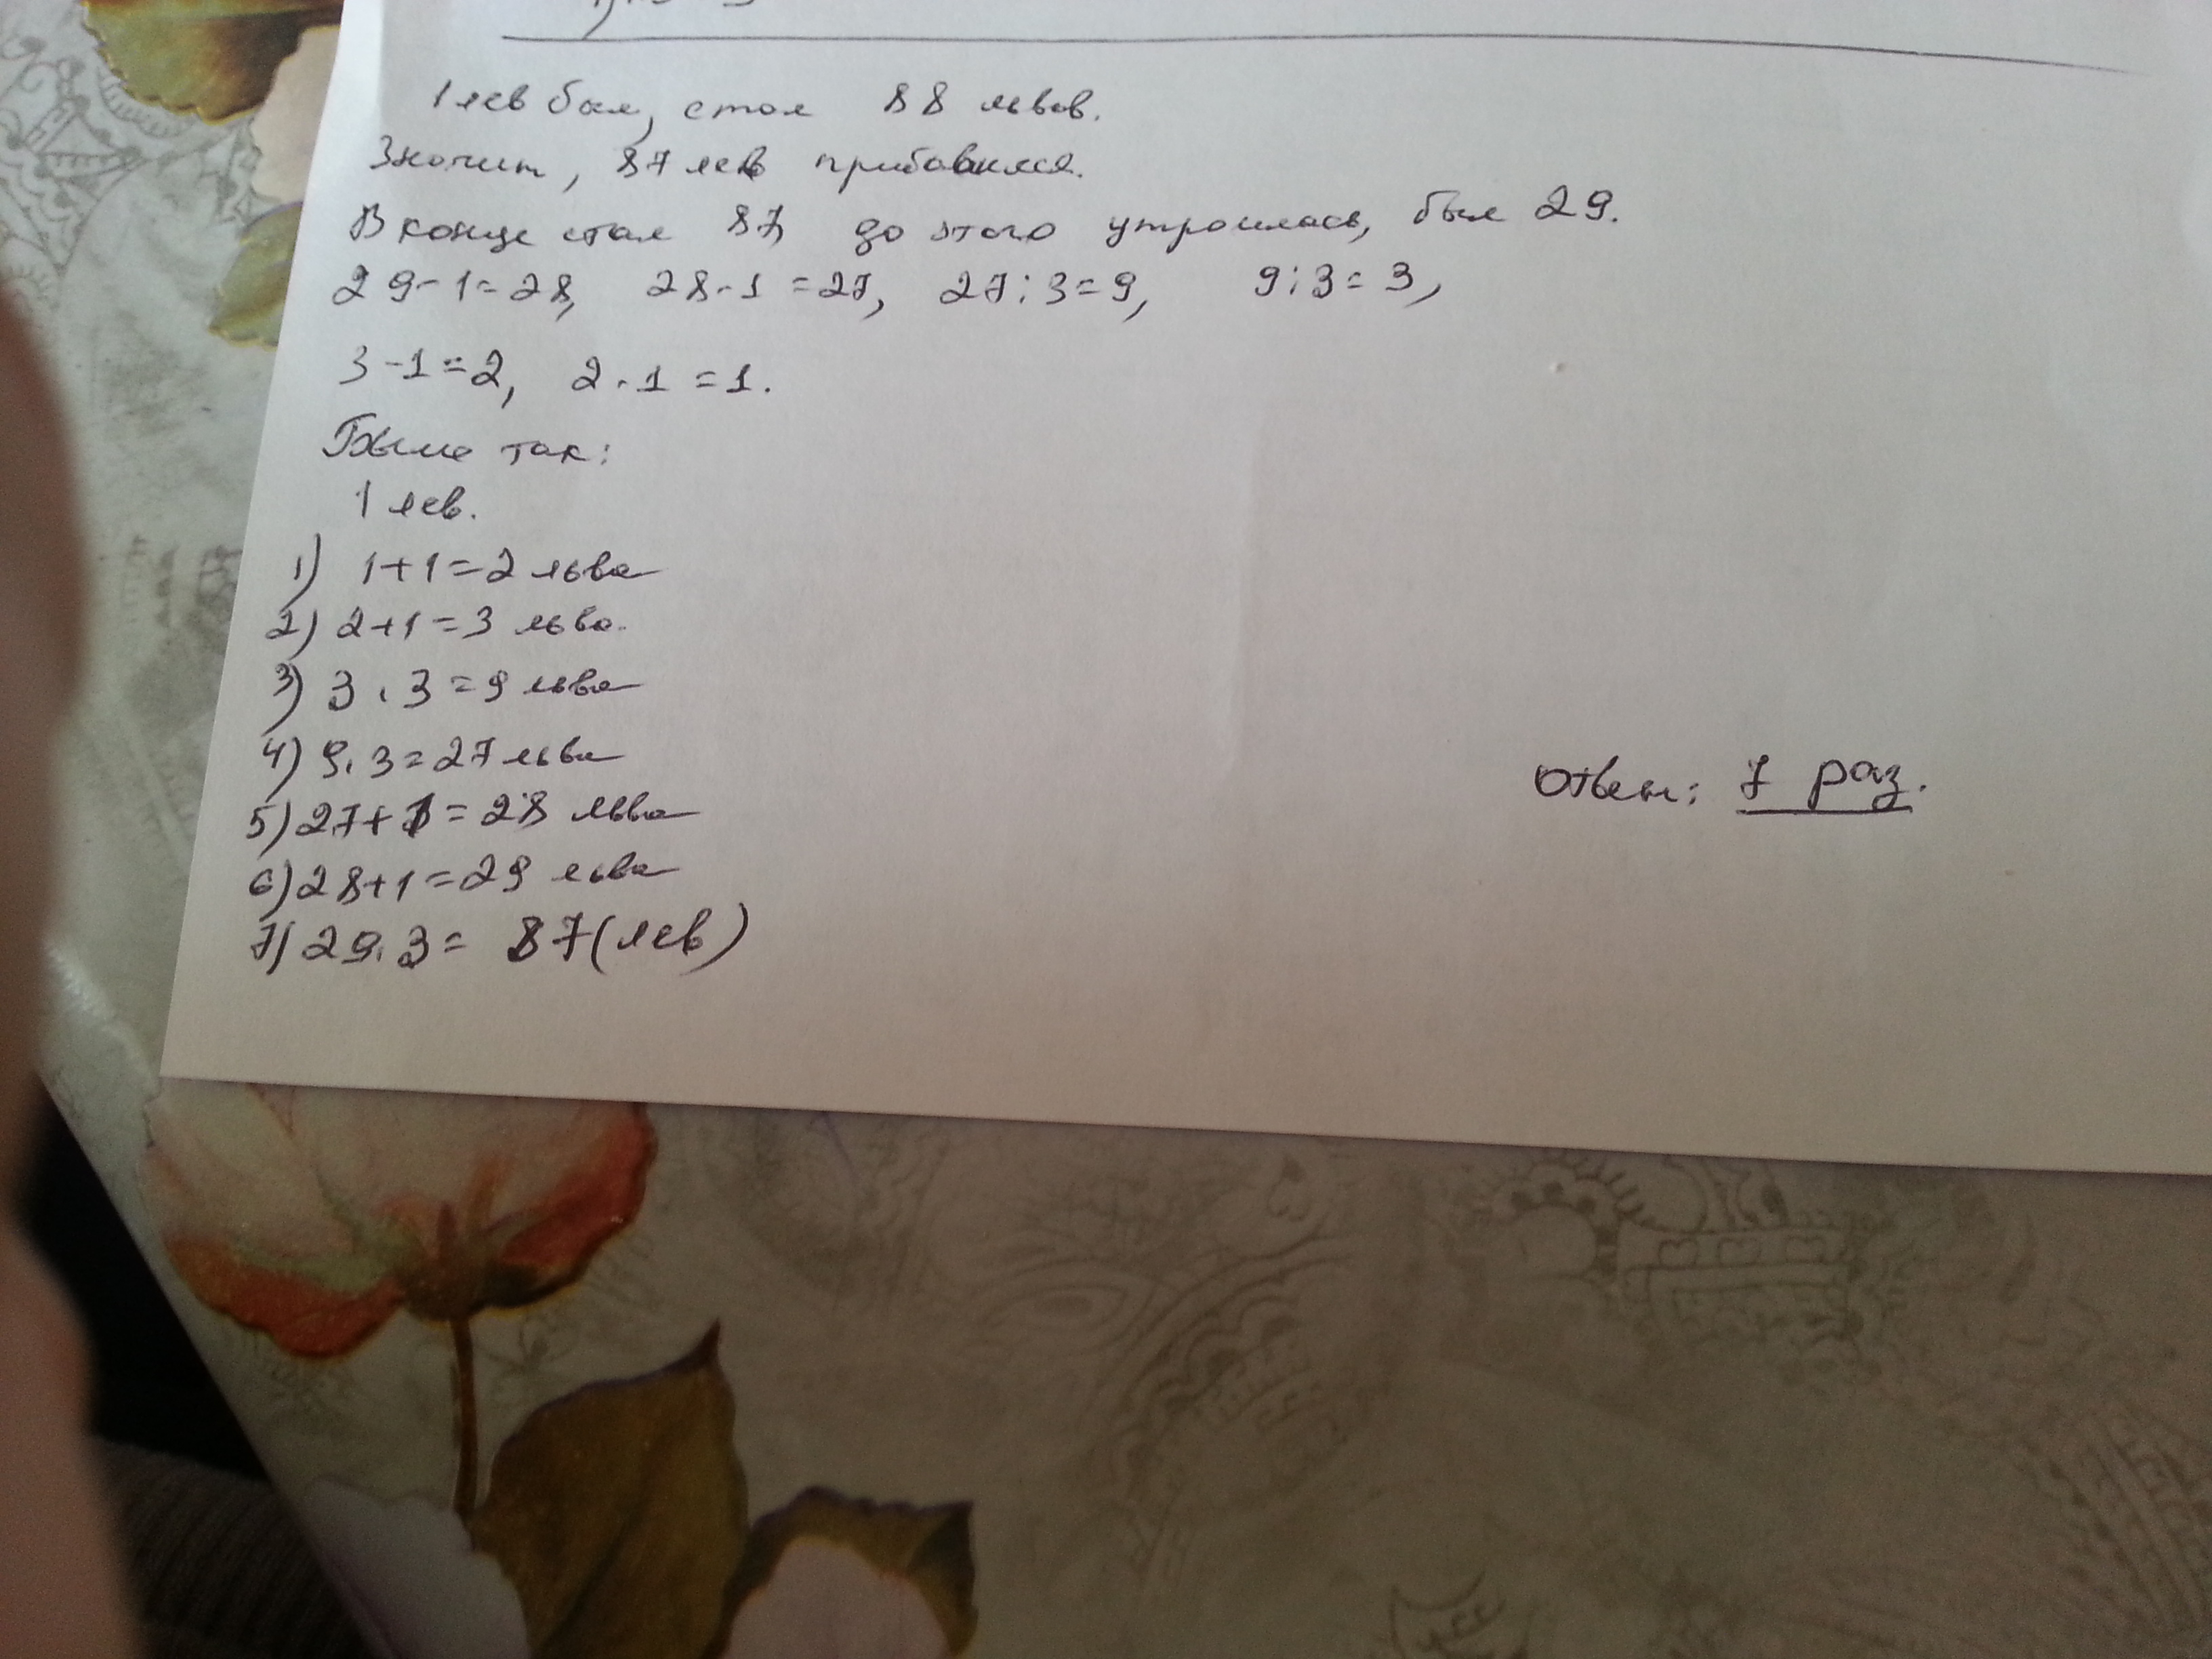 1 лев был, стал 88 львов.
Значит, 87 лев прибавился.
В конце стал 87, до этого утроилась, был 29.
29-1=28, 28-1=27, 27:3=9, 9:3=3,
3-1=2, 2-1=1.
Было так:
1 лев.
1) 1+1=2 льва
2) 2+1=3 льва.
3) 3·3=9 льва
4) 9·3=27 льва
5) 27+1=28 льва
Ответ: 7 раз.
6) 28+1=29 льва
7) 29·3= 87 (лев)